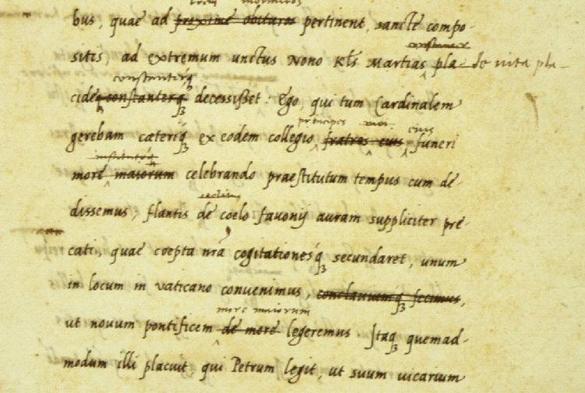 bus, quae ad proximè obituros pertinent, sanctè compo-
sitis, ad extremum unctus Nono Kls Martias pla- de vita pla-
constanterq
cideq constanterq decessisset: Ego, qui tum Cardinalem
principes eius
gerebam caeteriq ex eodem collegio fratres eius funeri
morè maiorum celebrando praestitutum tempus cum dè
dissemus, flantis dè coelo favonij auram suppliciter prè
cati, quae coepta nrā cogitationesq secundaret, unum
in locum in Vaticano convenimus, conclavimusq
more maiorum
ut novum pontificem dè morè legeremus Itaq quemad-
modum illi placuit qui Petrum legit, ut suum vicarium